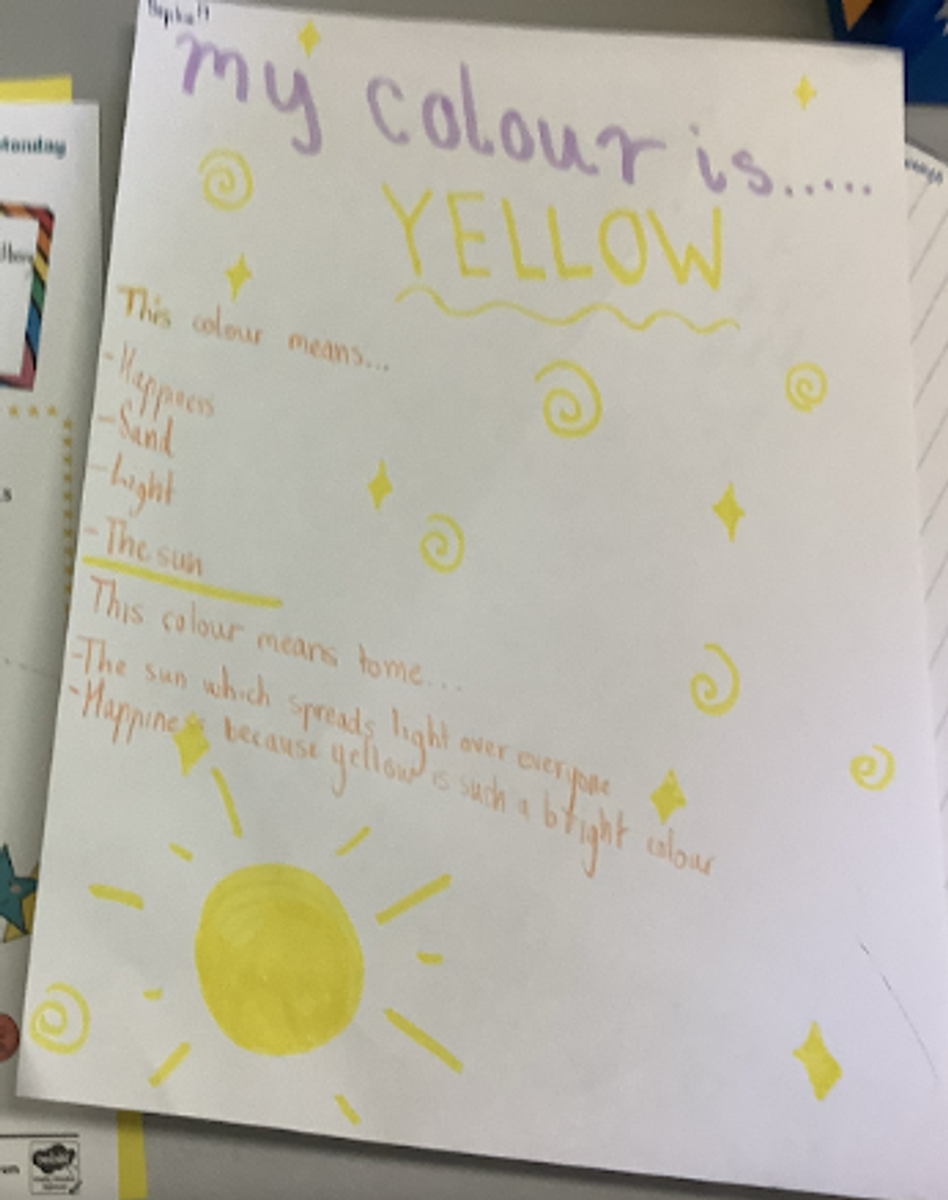 My colour is.....
YELLOW
This colour means...
-Happiness
-Sand
-Light
-The sun
This colour means to me...
-The sun which spreads light over everyone
-Happiness because yellow is such a bright colour
Monday